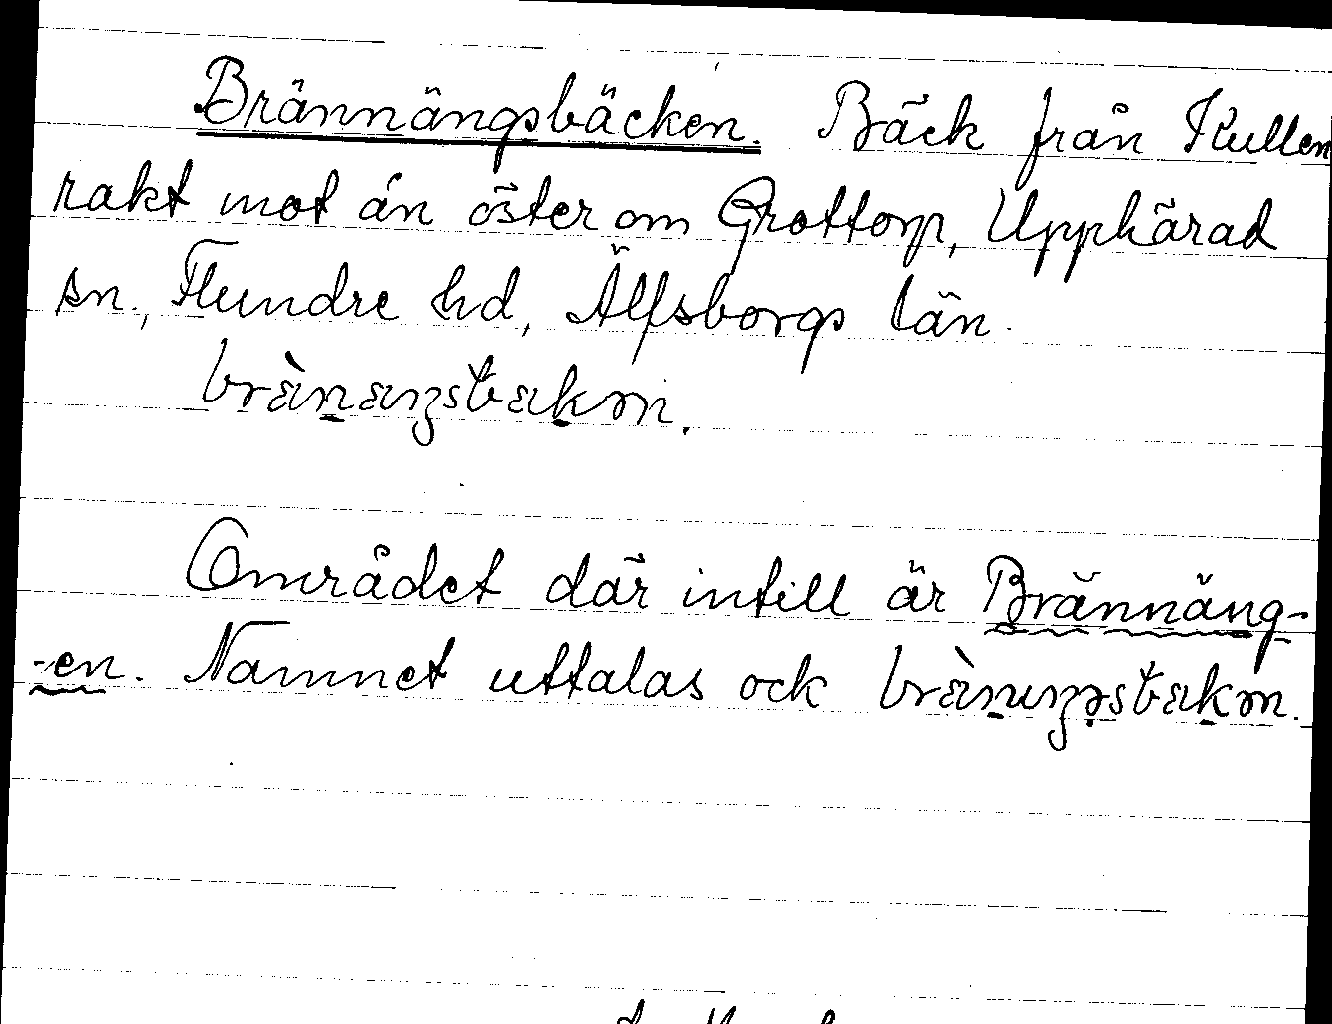 Brännängsbäcken. Bäck från Kullen
rakt mot ån öster om Grottorp, Upphärad
sn., Flundre hd, Älfsborgs län.
Området där intill är Brännäng-
-en. Namnet uttalas ock